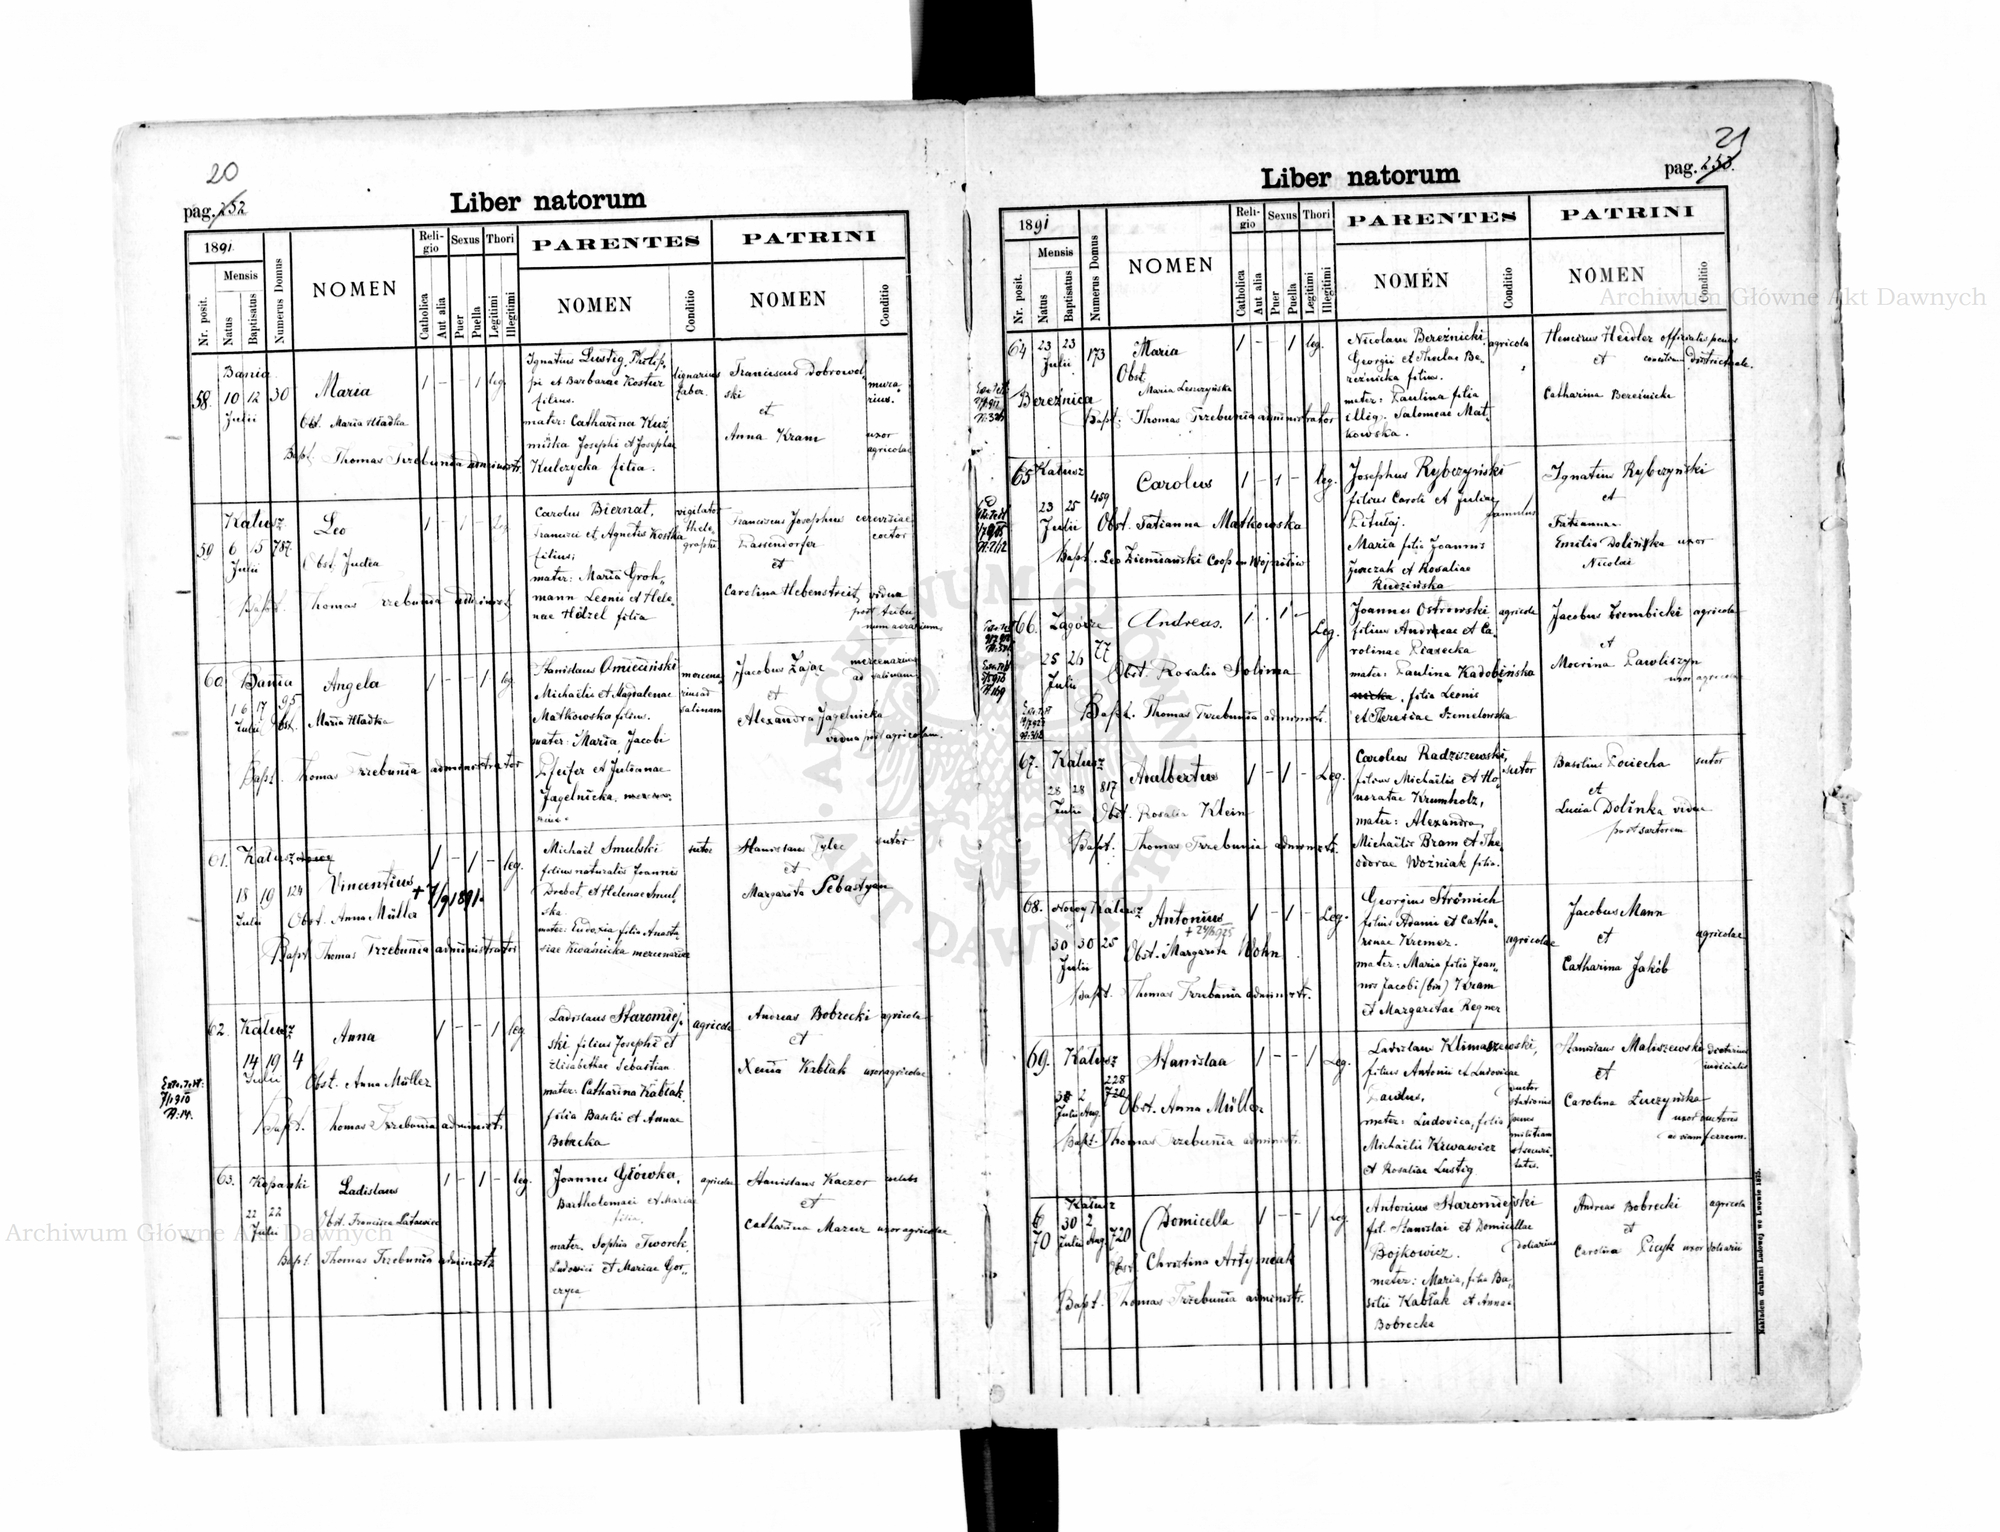 20
pag. 252
Liber natorum
1891.
Nr. posit.
Mensis
Natus
Baptisatus
Numerus Domus
NOMEN
Religio
Catholica
Aut alia
Sexus
Puer
Puella
Thori
Legitimi
Illegitimi
PARENTES
NOMEN
Conditio
PATRINI
NOMEN
Conditio
58.
Bania
10 12 30
Julii
Maria
Obst. Maria Hładka
Bapt. Thomas Trzebunia administr.
1 - - 1 leg.
Ignatius Lustig, Philip-
pi et Barbarae Kostur
filius.
mater: Catharina Kuź
mińska Josephi et Josephae
Kulczycka filia.
lignarius
faber.
Franciscus Dobrowol
ski
et
Anna Kram
mura-
rius.
uxor
agricolae
59
Kałusz
6 15 787.
Julii
Leo
Obst. Judea
Bapt. Thomas Trzebunia administr.
1 - 1 - leg
Carolus Biernat,
Francisci et Agnetis Kostka
filius;
mater: Maria Groh-
mann Leonis et Hele-
nae Hölzel filia
vigilator
thele-
graphi
Franciscus Josephus
Passendorfer
et
Carolina Hebenstreit
cerevisiae
coctor
vidua
post tribu
num aerarium
60.
Bania
16 17 95
Julii
Angela
Obst. Maria Hładka
Bapt. Thomas Trzebunia administrator
1 - - 1 leg
Stanislaus Omieciński
Michaelis et Magdalenae
Matkowska filius.
mater: Maria, Jacobi
Pfeifer et Julianae
Jagelnicka,
mercena-
rius ad
salinam
Jacobus Zając
et
Alexandra Jagelnicka
vidua post agricolam.
mercenarius
ad salinam
61.
Kałusz
18 19 124
Julii
Vincentius
+ 7/9 1891.
Obst. Anna Müller
Bapt. Thomas Trzebunia administrator
1 - 1 - leg.
Michael Smulski
filius naturalis Joannis
Drebot et Helenae Smul-
ska
mater: Eudoxia filia Anasta-
siae Kwaśnicka mercenariae
sutor
Stanislaus Tylec
et
Margarita Sebastyan
sutor
62.
Kałusz
14 19 4
Julii
Anna
Obst. Anna Müller
Bapt. Thomas Trzebunia administr.
1 - - 1 leg
Ladislaus Staromiej-
ski filius Josephi et
Elisabethae Sebastian
mater: Catharina Kabłak
filia Basilii et Annae
Bobrecka
agricola
Andreas Bobrecki
et
Xenia Kabłak
agricola
uxor agricolae
63.
Kopanki
22 22
Julii
Ladislaus
Obst. Francisca Latawiec
Bapt. Thomas Trzebunia administr
1 - 1 - leg.
Joannes Główka,
Bartholomaei et Mariae
filia.
mater. Sophia Tworek
Ludovici et Mariae Gor-
czyca
agricolae
Stanislaus Kaczor
et
Catharina Mazur
caelebs
uxor agricolae
21
pag. 253.
Liber natorum
1891
Nr. posit.
Mensis
Natus
Baptisatus
Numerus Domus
NOMEN
Religio
Catholica
Aut alia
Sexus
Puer
Puella
Thori
Legitimi
Illegitimi
PARENTES
NOMEN
Conditio
PATRINI
NOMEN
Conditio
64
23 23 173
Julii
Bereźnica
Maria
Obst
Maria Leszczyńska
Bapt. Thomas Trzebunia administrator
1 - - 1 leg.
Nicolaus Bereźnicki,
Georgii et Theclae Be-
reźnicka filius.
mater: Paulina filia
illeg. Salomeae Mat-
kowska.
agricola
Henricus Heidler officialis penes
et consilium districtuale.
Catharina Bereźnicki
65
Kałusz
23 25 459
Julii
Carolus
Obst. Tatianna Matkowska
Bapt. Leo Ziemiański Coop. en Wojniłów
1 - 1 - leg.
Josephus Rybczyński
filius Caroli et Juliae
Pitułaj.
Maria filia Joannis
Jurczak et Rosaliae
Rudzińska
famulus
Ignatius Rybczyński
et
Tatianna
Emilia Dolińska uxor
Nicolai
66.
Zagórze
25 26 77
Julii
Andreas.
Obst. Rosalia Solima
Bapt. Thomas Trzebunia administr.
1 . 1 - Leg.
Joannes Ostrowski
filius Andreae et Ca-
rolinae Piasecka
mater: Paulina Kadobińska
filia Leonis
et Theresiae Szmelowska
agricola
Jacobus Trembicki
et
Mocrina Pawliszyn
uxor agricolae
agricola
67.
Kałusz
28 28 817
Julii
Adalbertus
Obst. Rosalia Klein
Bapt. Thomas Trzebunia administr.
1 - 1 - Leg.
Carolus Radziszewski,
filius Michaelis et Ho-
noratae Krumholz,
mater: Alexandra,
Michaelis Bram et The-
odorae Woźniak filia.
sutor
Basilius Pociecha
et
Lucia Dolinka vidua
post sartorem
sutor
68.
Nowy Kałusz
30 30 25
Julii
Antonius
Obst. Margarita Wohn
Bapt. Thomas Trzebunia administr.
1 - 1 - Leg.
Georgius Strömich
filius Adami et Catha-
renae Kremer.
mater: Maria filia Joan-
nis Jacobi (bin) Kram
et Margaritae Regner
agricolae
Jacobus Mann
et
Catharina Jakób
agricolae
69.
Kałusz
228
720
2
Julii Aug.
Stanislaa
Obst. Anna Müller
Bapt. Thomas Trzebunia administr.
1 - - 1 Leg.
Ladislaus Klimaszewski,
filius Antonii et Ludovicae
mater: Ludovica, filia
Michaelis Krwawicz
et Rosaliae Lustig
ductor
stationis
penes
militiam
securi-
tatis.
Stanislaus Maliszewski
et
Carolina Łuczyńska
uxor
ad viam ferream.
judicialis
70
Kałusz
30 2 720
Julii Aug.
Domicella
Obst. Christina Artymiak
Bapt. Thomas Trzebunia administr.
1 - - 1 leg
Antonius Staromiejski
fil. Stanislai et Domicellae
Bojkowicz.
mater: Maria, filia Ba-
silii Kabłak et Annae
Bobrecka
doliarius
Andreas Bobrecki
et
Carolina Picyk uxor doliarii
agricola
Nakładem drukarni Ludowej we Lwowie 1875.
Archiwum Główne Akt Dawnych
Archiwum Główne Akt Dawnych
ARCHIWUM GŁÓWNE AKT DAWNYCH